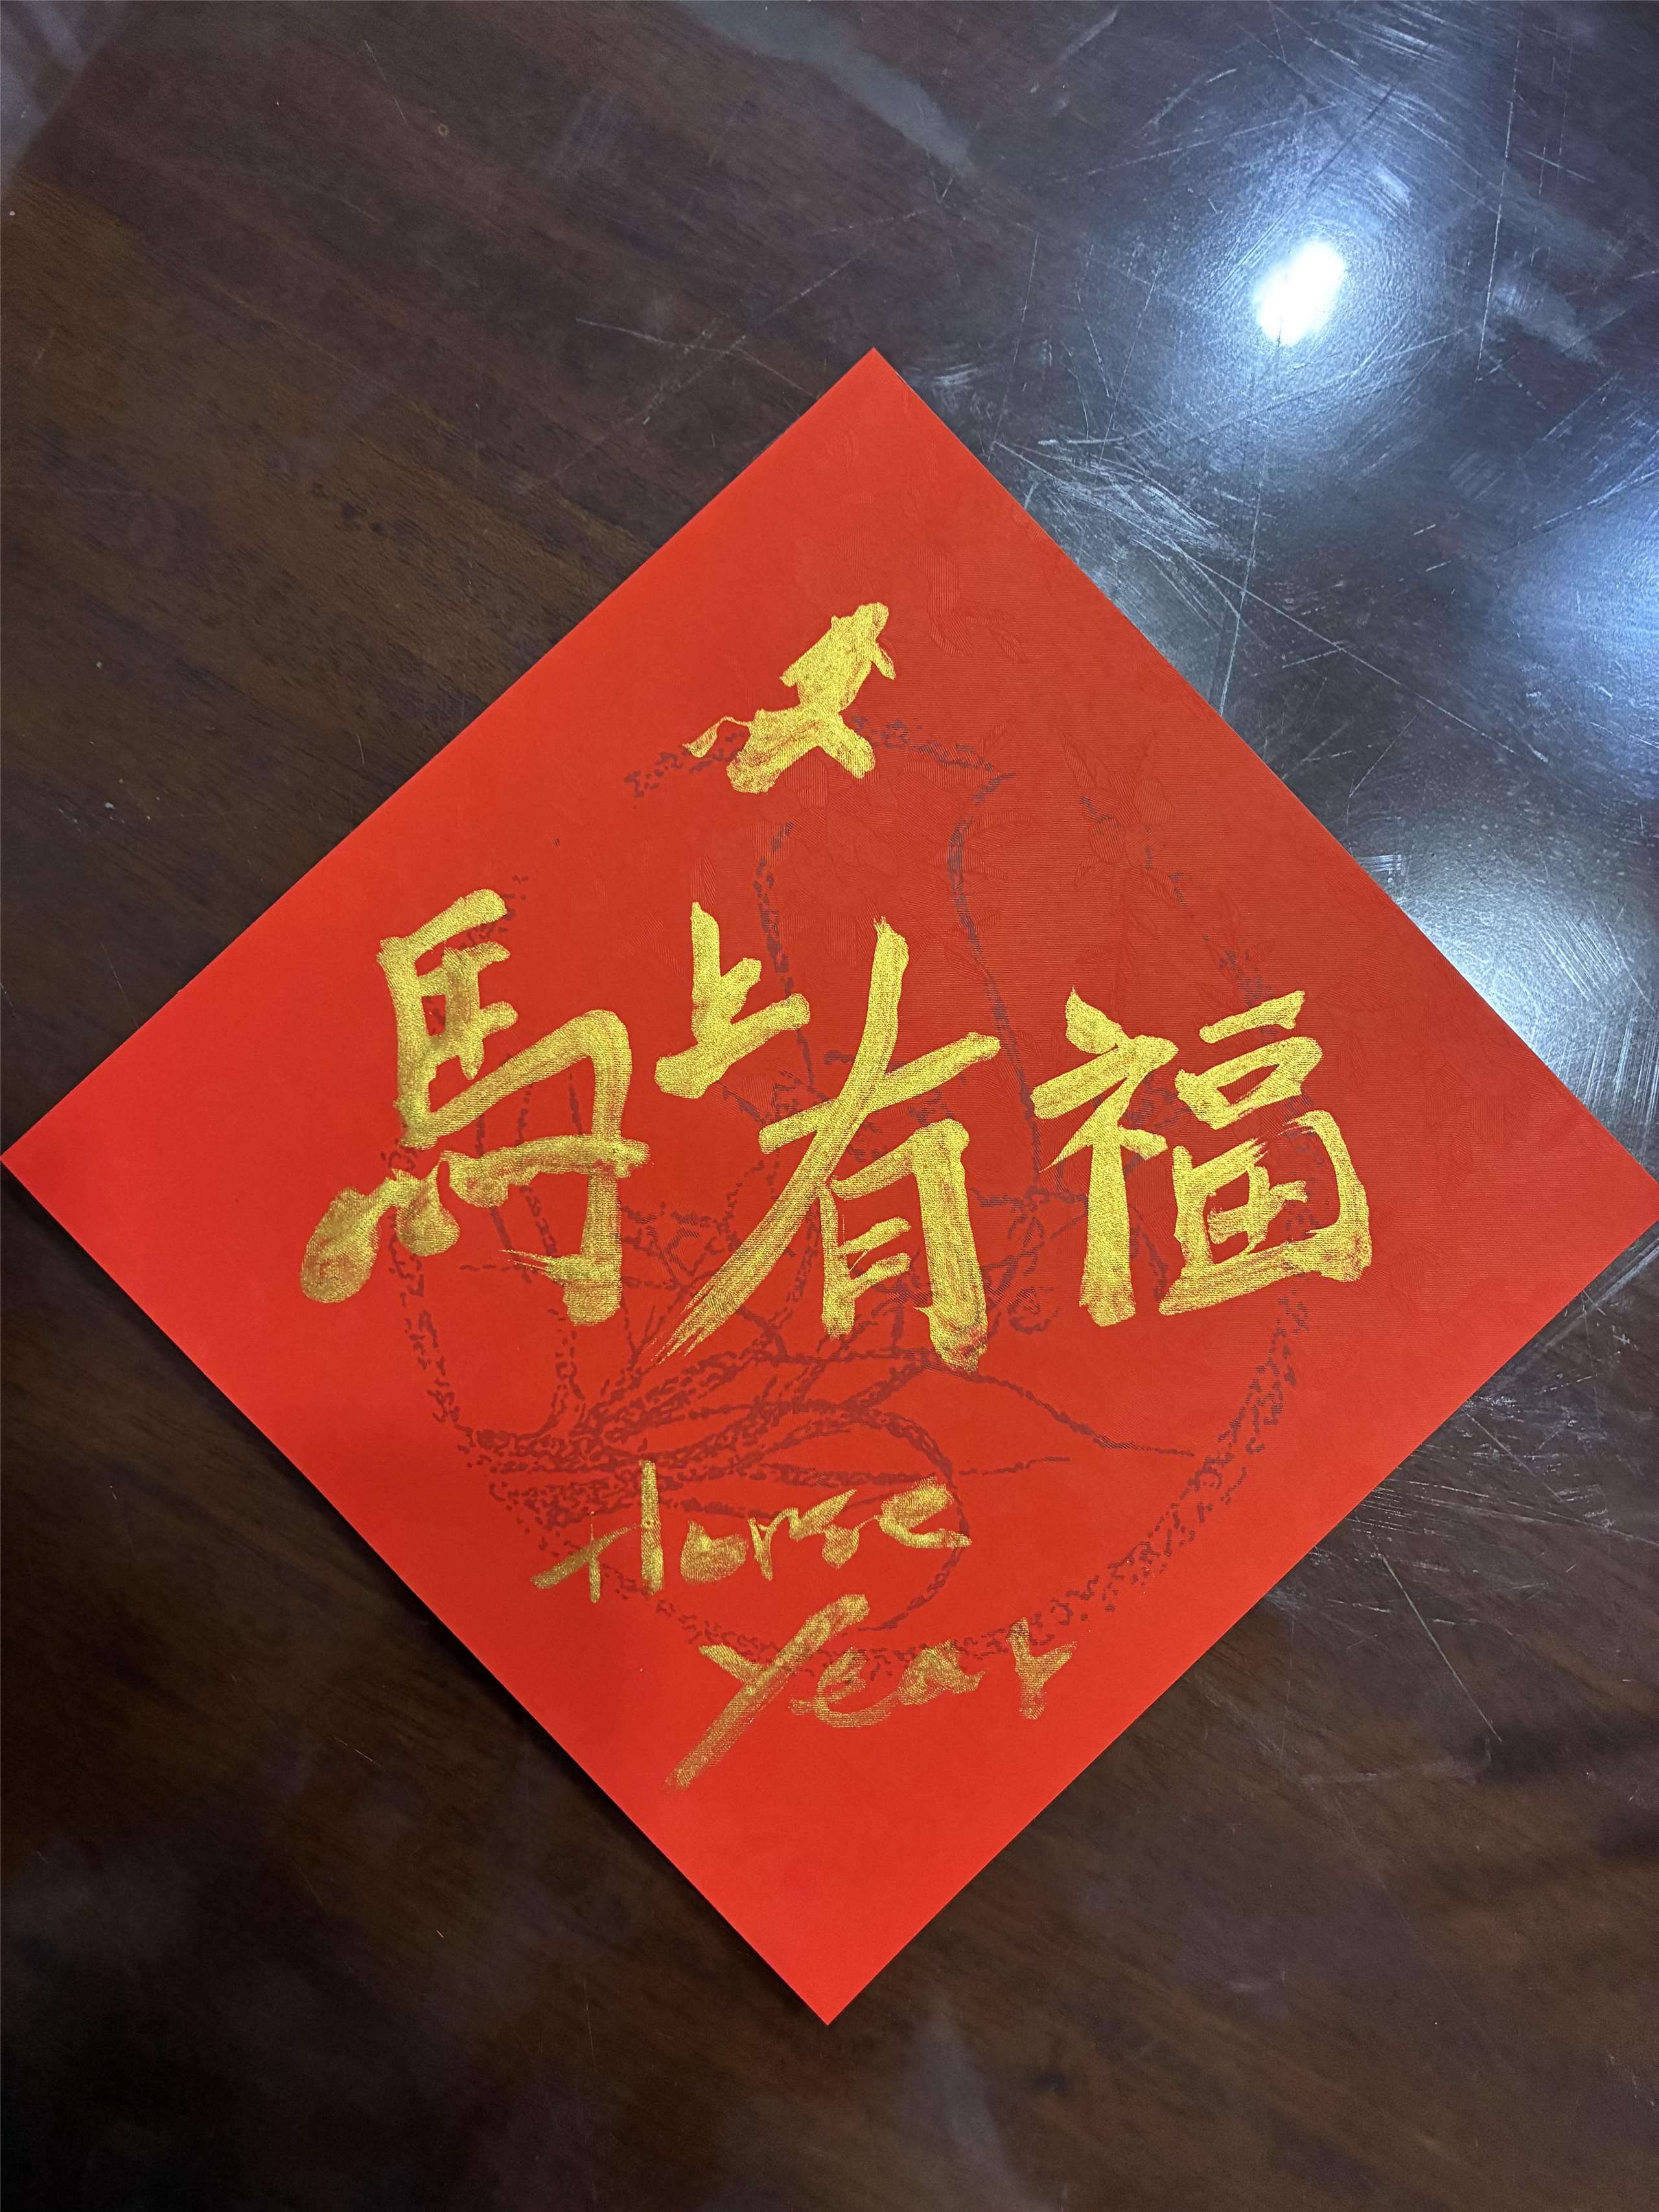 馬上有福
Horse
Year